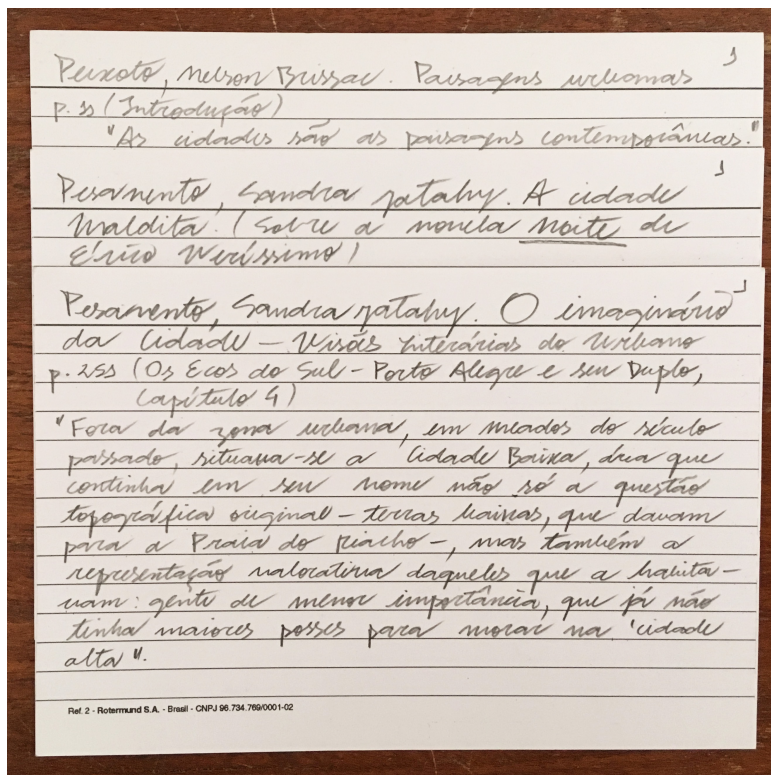 1
Peixoto, Nelson Brissac. Paisagens urbanas
p. 11 (Introdução)
"As cidades são as paisagens contemporâneas."
1
Pesavento, Sandra Jatahy. A cidade
Maldita. (Sobre a novela Noite de
Érico Veríssimo)
1
Pesavento, Sandra Jatahy. O imaginário
da Cidade – Visões Literárias do Urbano
p. 255 (Os Ecos do Sul – Porto Alegre e seu Duplo,
Capítulo 4)
"Fora da zona urbana, em meados do século
passado, situava-se a Cidade Baixa, área que
continha em seu nome não só a questão
topográfica original – terras baixas, que davam
para a Praia do Riacho –, mas também a
representação valorativa daqueles que a habita-
vam: gente de menor importância, que já não
tinha maiores posses para morar na 'cidade
alta'".
Ref. 2 - Rotermund S.A. - Brasil - CNPJ 96.734.769/0001-02